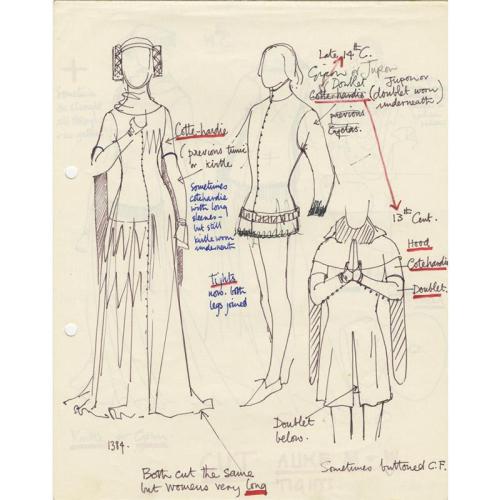 Late 14th C.
Gipon or Jupon
Doublet
Cotte-hardie
Jupon or
(doublet worn
underneath)
previous
Cyclas.
Cotte-hardie
(previous tunic
or kirtle
Sometimes
cotehardie
with long
sleeves -
but still
kirtle worn
underneath
Tights
now. both
legs joined
13th Cent.
Hood
Cotehardie
Doublet.
Doublet
below.
1384.
Both cut the same
but womens very long
Sometimes buttoned C.F.